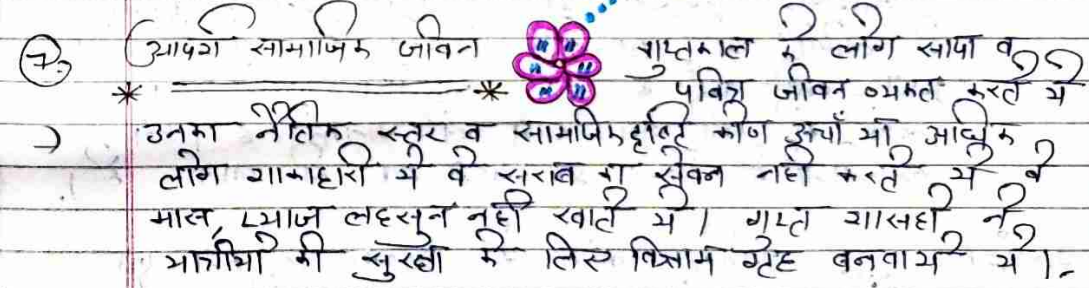 7. आदर्श सामाजिक जीवन गुप्तकाल के लोग सादा व
पवित्र जीवन व्यकत करते थे
उनका नैतिक स्तर व सामाजिक दृष्टि कोण ऊचाँ था अधिक
लोग शाकाहारी थे वे सराब का सेवन नही करते थे वे
मास, प्याज लहसुन नही खाते थे। गुप्त शासको ने
यात्रीयो की सुरक्षा के लिए विश्राम गृह बनवाये थे।